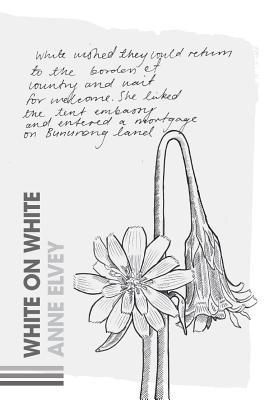 White wished they could return
to the border of
country and wait
for welcome. She liked
the tent embassy
and entered a mortgage
on Bunurong land
WHITE ON WHITE
ANNE ELVEY